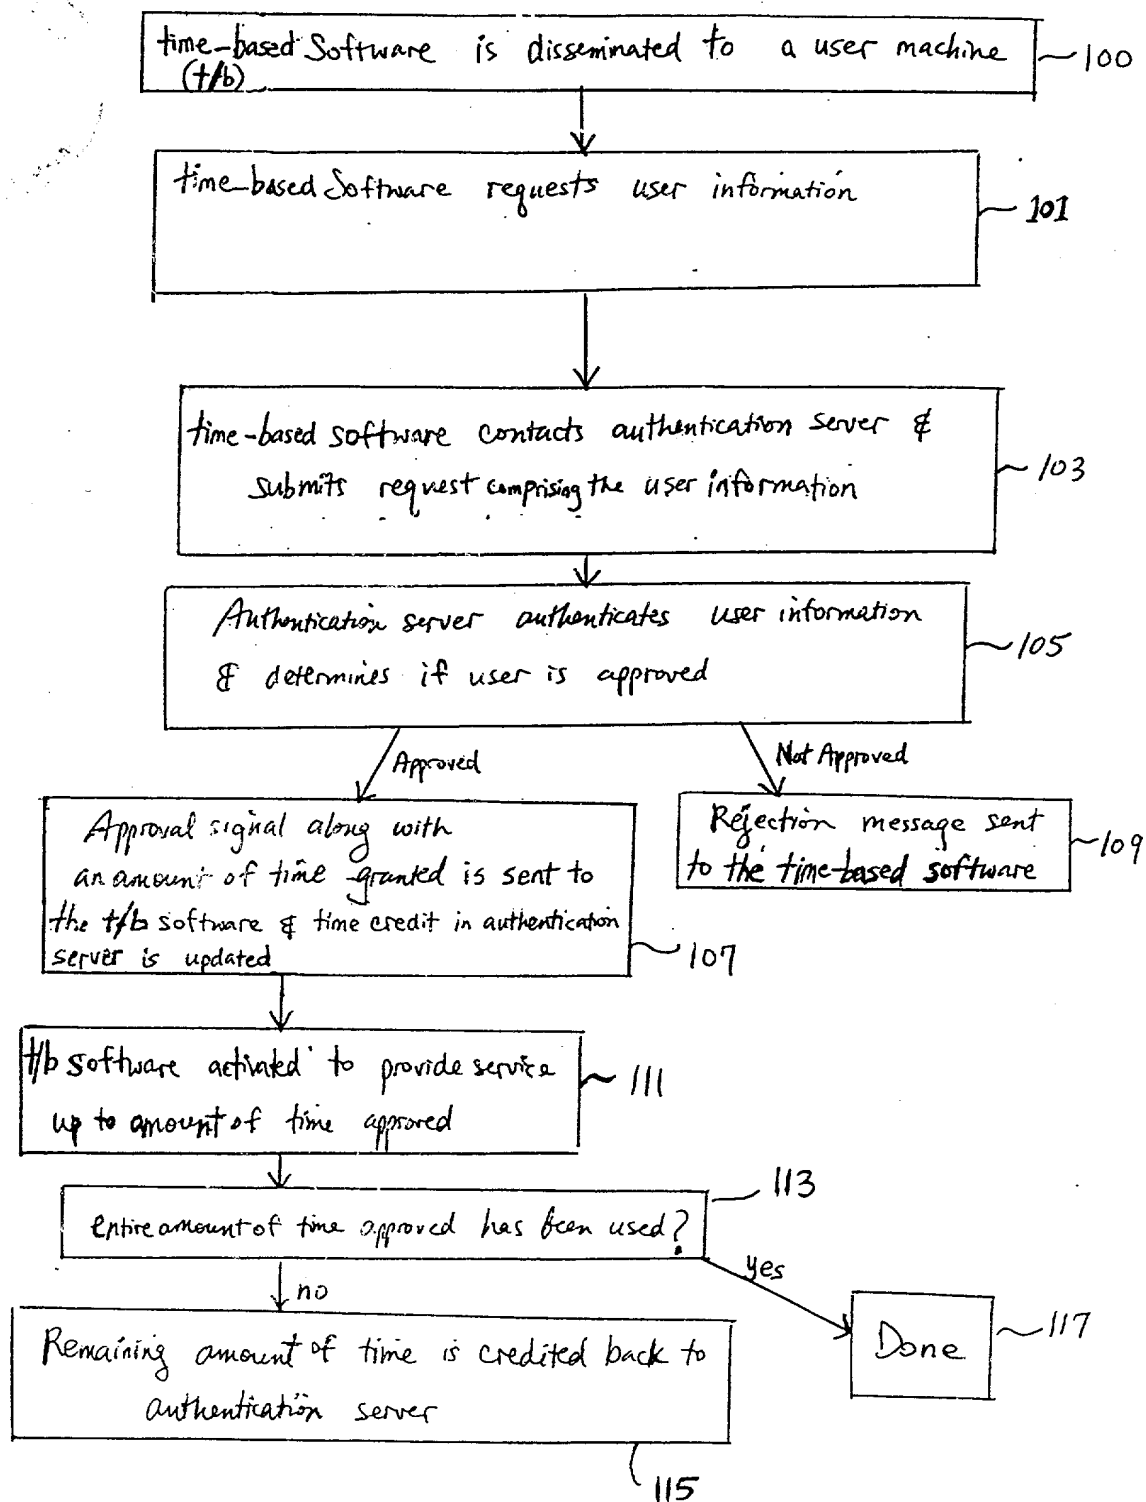 time-based Software is disseminated to a user machine
(t/b)
100
time-based Software requests user information
101
time-based software contacts authentication server &
submits request comprising the user information
103
Authentication server authenticates user information
& determines if user is approved
105
Approved
Not Approved
Approval signal along with
an amount of time granted is sent to
the t/b software & time credit in authentication
server is updated
107
Rejection message sent
to the time-based software
109
t/b software activated to provide service
up to amount of time approved
111
113
entire amount of time approved has been used?
yes
no
Done
117
Remaining amount of time is credited back to
authentication server
115